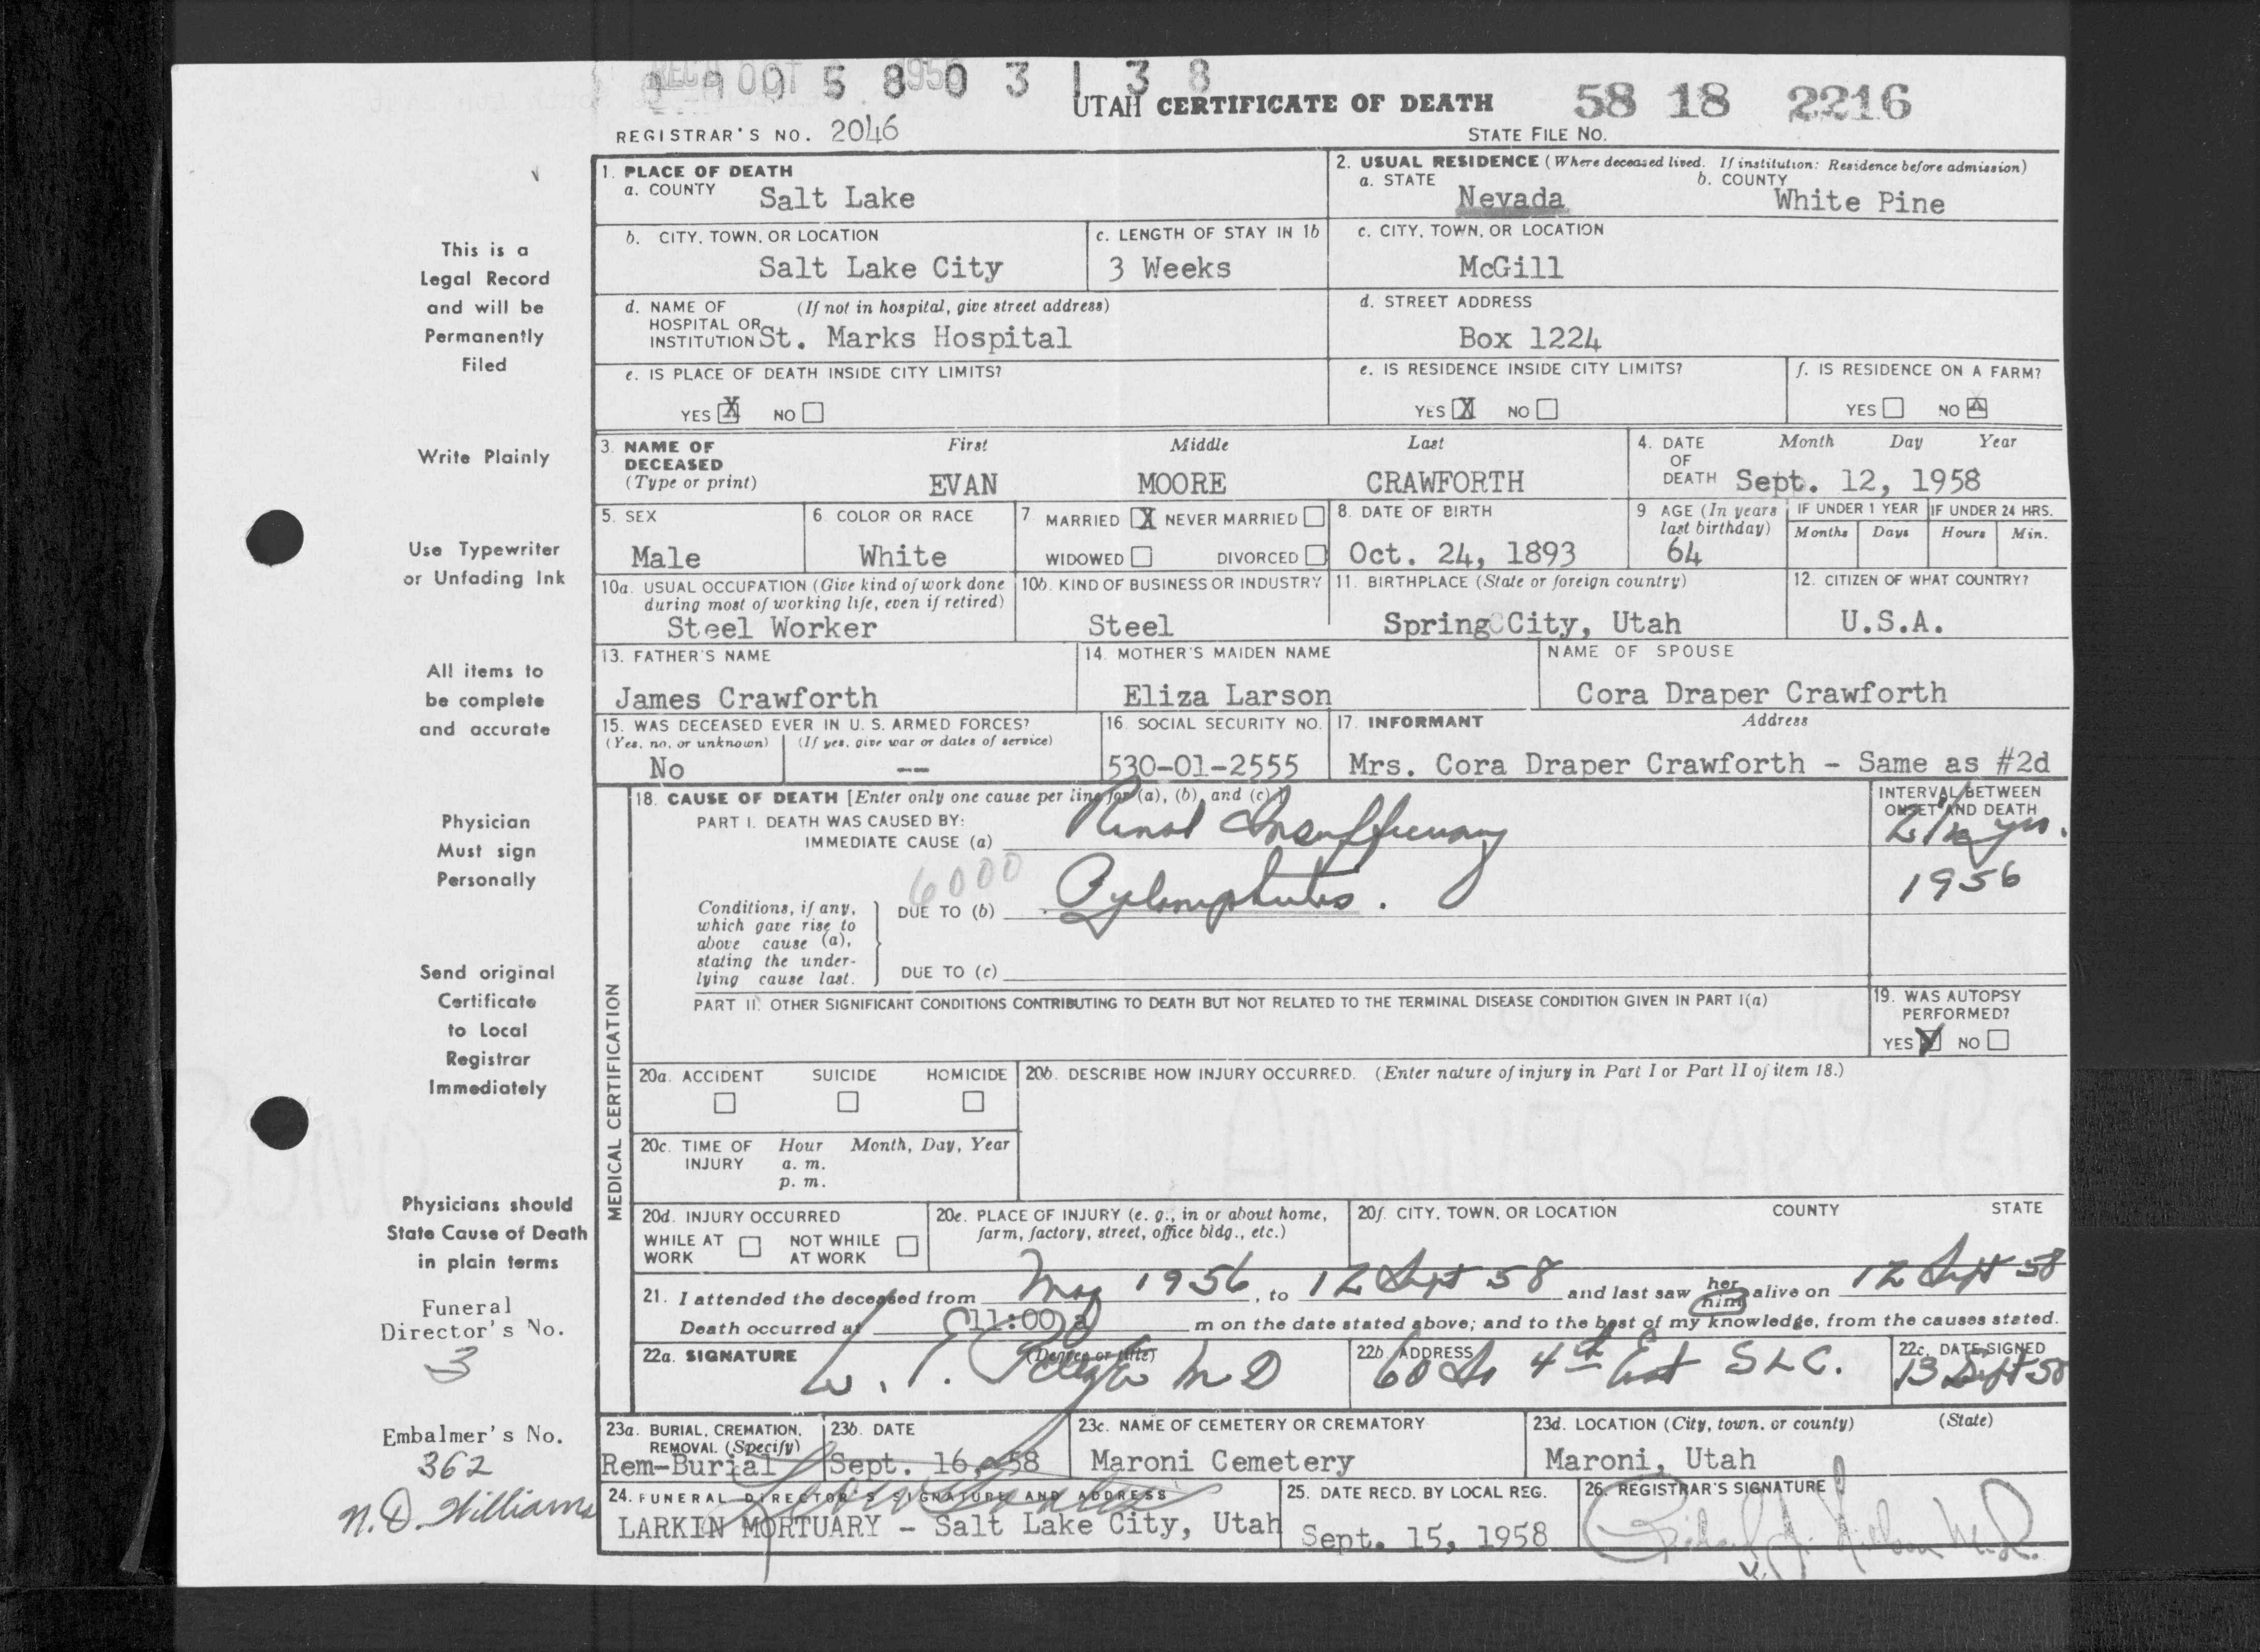 REC'D OCT 1958
1905803138
UTAH CERTIFICATE OF DEATH
58 18 2216
REGISTRAR'S NO. 2046
STATE FILE NO.
This is a
Legal Record
and will be
Permanently
Filed
Write Plainly
Use Typewriter
or Unfading Ink
All items to
be complete
and accurate
Physician
Must sign
Personally
Send original
Certificate
to Local
Registrar
Immediately
Physicians should
State Cause of Death
in plain terms
Funeral
Director's No.
3
Embalmer's No.
362
N.D. Williams
1. PLACE OF DEATH
a. COUNTY Salt Lake
2. USUAL RESIDENCE (Where deceased lived. If institution: Residence before admission)
a. STATE Nevada b. COUNTY White Pine
b. CITY, TOWN, OR LOCATION
Salt Lake City
c. LENGTH OF STAY IN 1b
3 Weeks
c. CITY, TOWN, OR LOCATION
McGill
d. NAME OF (If not in hospital, give street address)
HOSPITAL OR
INSTITUTION St. Marks Hospital
d. STREET ADDRESS
Box 1224
e. IS PLACE OF DEATH INSIDE CITY LIMITS?
YES X NO
e. IS RESIDENCE INSIDE CITY LIMITS?
YES X NO
f. IS RESIDENCE ON A FARM?
YES NO X
3. NAME OF
DECEASED
(Type or print)
First Middle Last
EVAN MOORE CRAWFORTH
4. DATE Month Day Year
OF
DEATH Sept. 12, 1958
5. SEX
Male
6. COLOR OR RACE
White
7 MARRIED X NEVER MARRIED
WIDOWED DIVORCED
8. DATE OF BIRTH
Oct. 24, 1893
9 AGE (In years
last birthday)
64
IF UNDER 1 YEAR
Months Days
IF UNDER 24 HRS.
Hours Min.
10a. USUAL OCCUPATION (Give kind of work done
during most of working life, even if retired)
Steel Worker
10b. KIND OF BUSINESS OR INDUSTRY
Steel
11. BIRTHPLACE (State or foreign country)
Spring City, Utah
12. CITIZEN OF WHAT COUNTRY?
U.S.A.
13. FATHER'S NAME
James Crawforth
14. MOTHER'S MAIDEN NAME
Eliza Larson
NAME OF SPOUSE
Cora Draper Crawforth
15. WAS DECEASED EVER IN U. S. ARMED FORCES?
(Yes, no, or unknown) (If yes, give war or dates of service)
No --
16. SOCIAL SECURITY NO.
530-01-2555
17. INFORMANT Address
Mrs. Cora Draper Crawforth - Same as #2d
MEDICAL CERTIFICATION
18. CAUSE OF DEATH [Enter only one cause per line for (a), (b), and (c).]
PART I. DEATH WAS CAUSED BY:
IMMEDIATE CAUSE (a) Renal Insufficiency
INTERVAL BETWEEN
ONSET AND DEATH
2 1/2 yrs.
6000
Conditions, if any,
which gave rise to
above cause (a),
stating the under-
lying cause last.
DUE TO (b) Pyelonephritis.
1956
DUE TO (c)
PART II. OTHER SIGNIFICANT CONDITIONS CONTRIBUTING TO DEATH BUT NOT RELATED TO THE TERMINAL DISEASE CONDITION GIVEN IN PART I(a)
19. WAS AUTOPSY
PERFORMED?
YES X NO
20a. ACCIDENT SUICIDE HOMICIDE
20b. DESCRIBE HOW INJURY OCCURRED. (Enter nature of injury in Part I or Part II of item 18.)
20c. TIME OF Hour Month, Day, Year
INJURY a. m.
p. m.
20d. INJURY OCCURRED
WHILE AT NOT WHILE
WORK AT WORK
20e. PLACE OF INJURY (e. g., in or about home,
farm, factory, street, office bldg., etc.)
20f. CITY, TOWN, OR LOCATION COUNTY STATE
21. I attended the deceased from May 1956, to 12 Sept 58 and last saw her him alive on 12 Sept 58
Death occurred at 11:00 a m on the date stated above; and to the best of my knowledge, from the causes stated.
22a. SIGNATURE (Degree or title)
W. T. MD
22b. ADDRESS
60 So 4th East SLC.
22c. DATE SIGNED
13 Sept 58
23a. BURIAL, CREMATION,
REMOVAL (Specify)
Rem-Burial
23b. DATE
Sept. 16, 58
23c. NAME OF CEMETERY OR CREMATORY
Maroni Cemetery
23d. LOCATION (City, town, or county) (State)
Maroni, Utah
24. FUNERAL DIRECTOR'S SIGNATURE AND ADDRESS
LARKIN MORTUARY - Salt Lake City, Utah
25. DATE RECD. BY LOCAL REG.
Sept. 15, 1958
26. REGISTRAR'S SIGNATURE